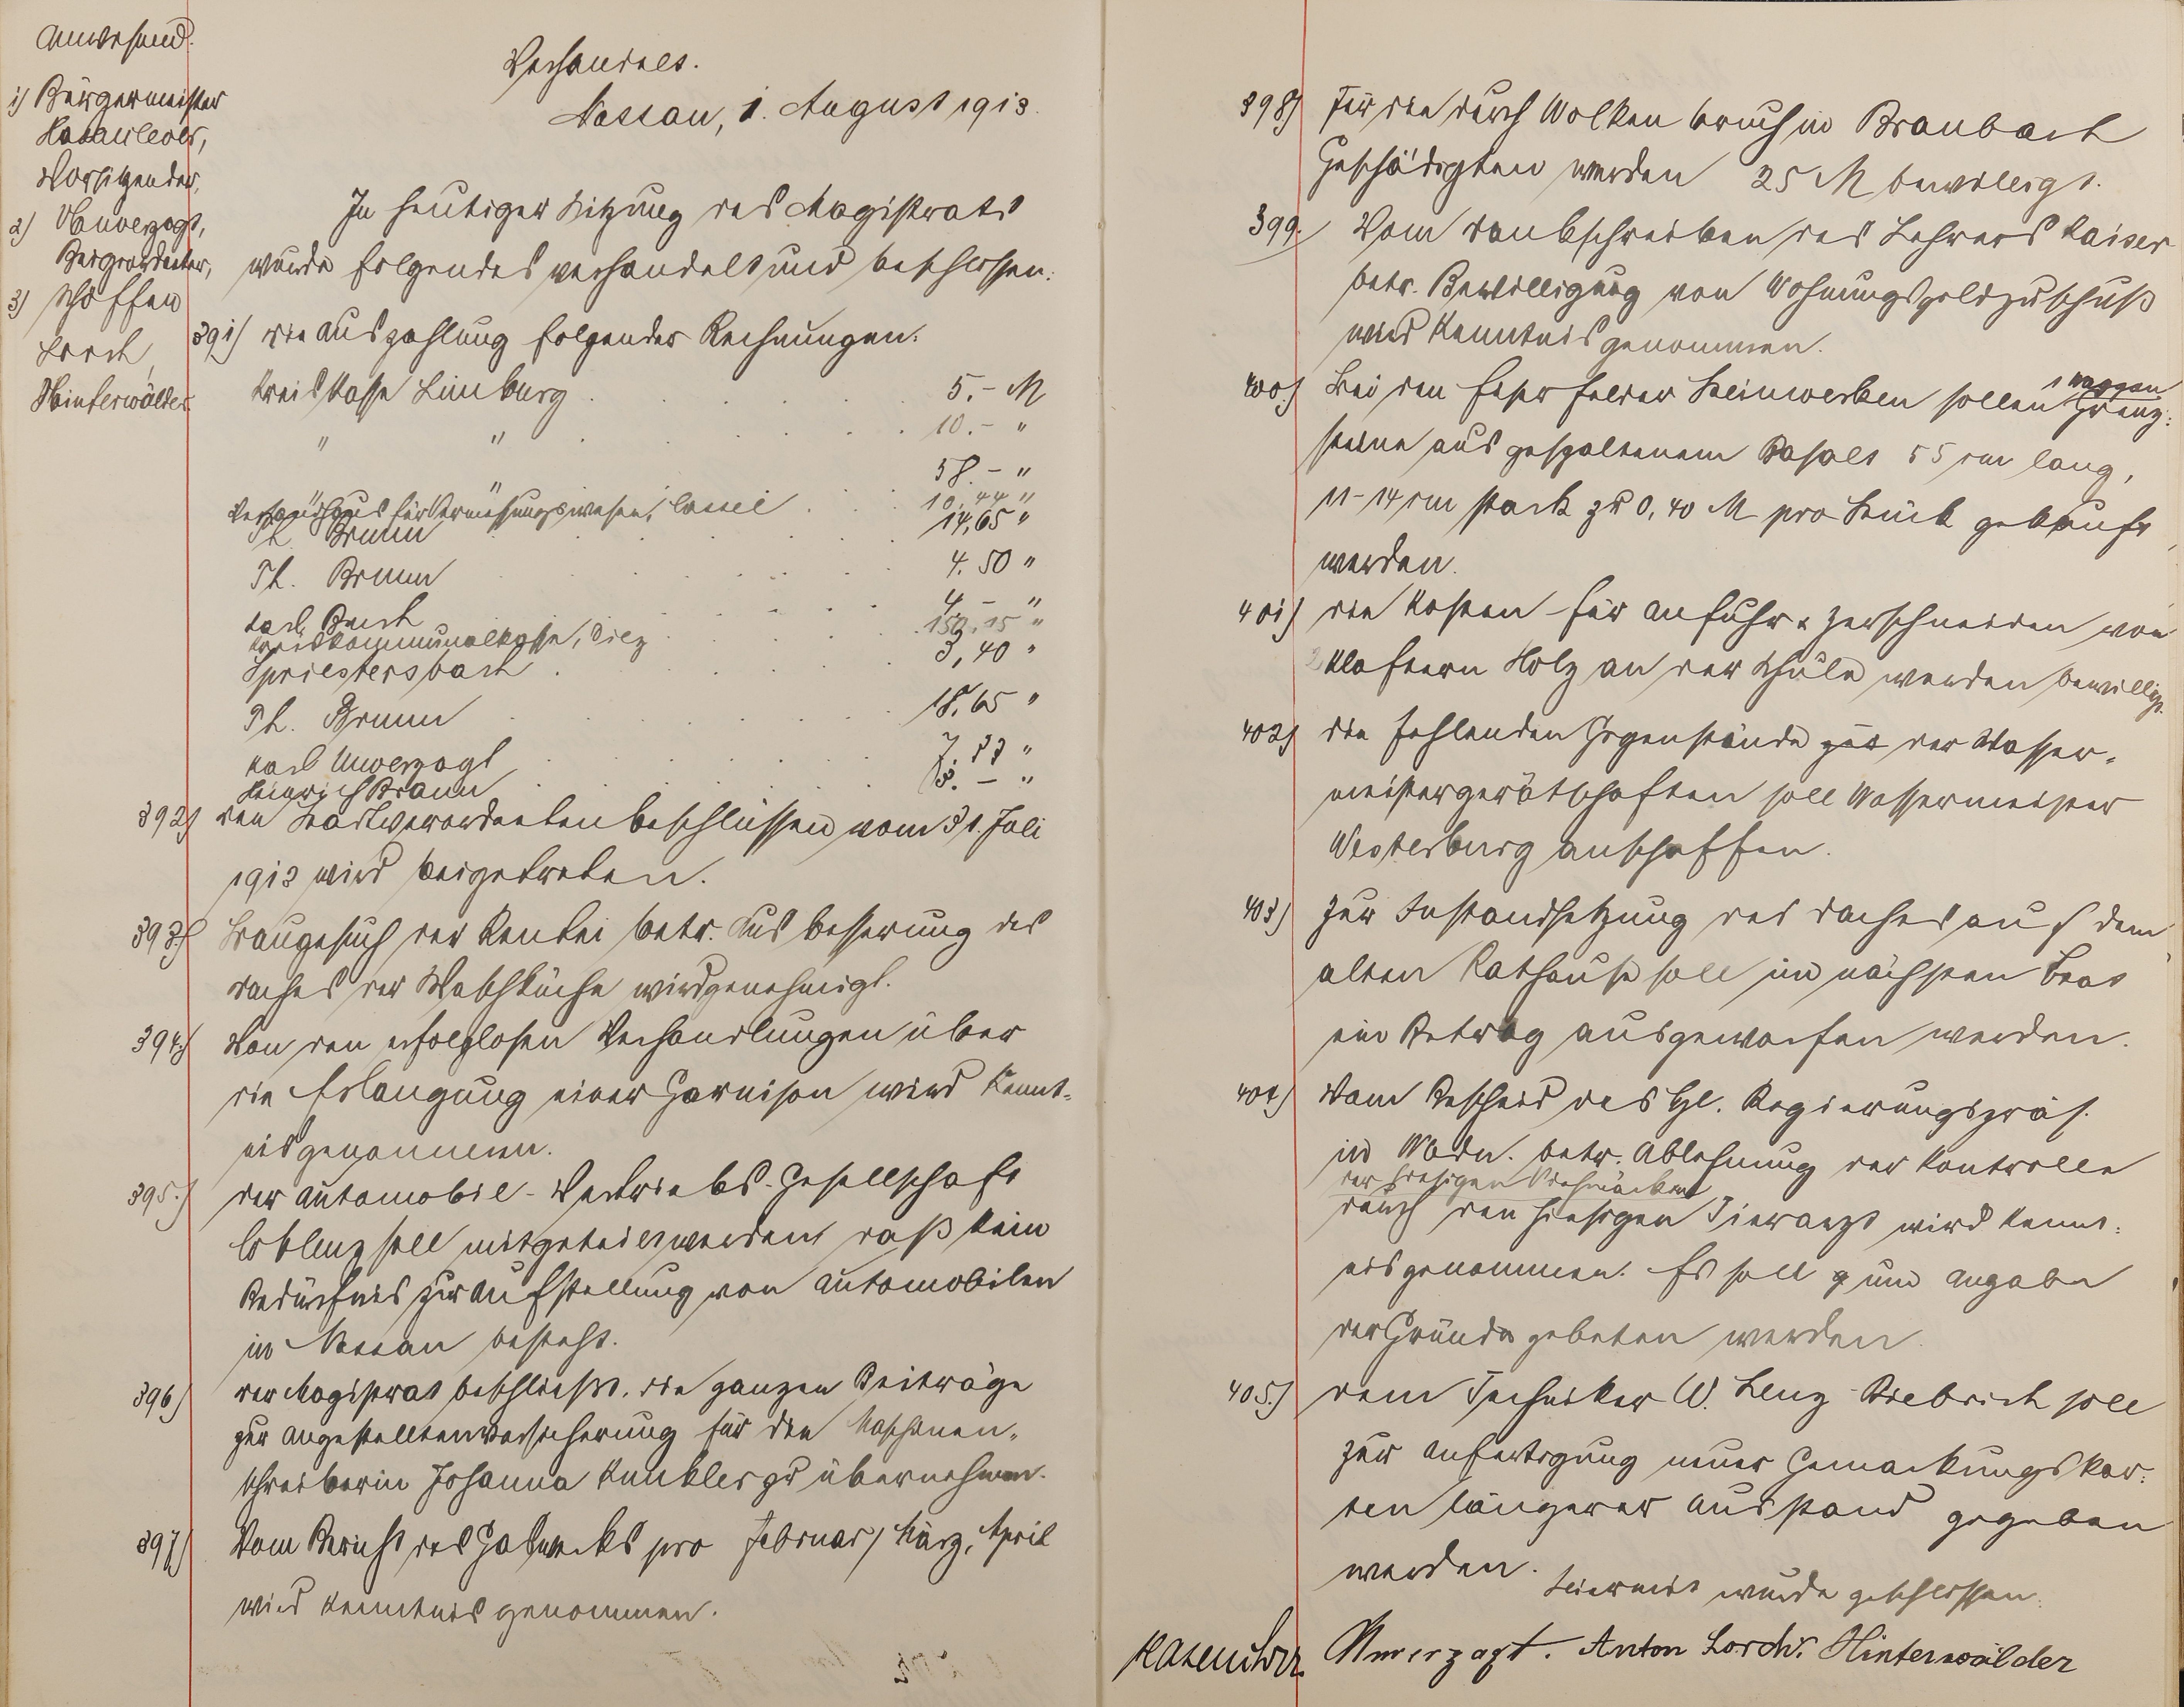 Anwesend.
1) Bürgermeister
Hasenclever,
Vorsitzender,
2) Unverzagt,
Beigeordneter,
3) Schöffen
Lorch,
Hinterwälder
Verhandelt.
Nassau, 1. August 1913.
In heutiger Sitzung des Magistrats
wurde folgendes verhandelt und beschlossen:
391) die Auszahlung folgender Rechnungen:
Kreiskasse Limburg . . . . 5.- M
" " . . . . 10.- "
58.- "
für Vermessungswesen, Cassel . . . 10,44 "
Ph. Brum . . . . 14,65 "
Ph. Brum . . . . 4.50 "
Karl Busch . . . . 4 - "
Kreiskommunalkasse, Diez . . . . 150,15 "
Spriestersbach . . . . 3,40 "
Ph. Brum . . . . 18,65 "
Karl Unverzagt . . . . 7.23 "
Heinrich Braun . . . . 8. - "
392) den Stadtverordnetenbeschlüssen vom 31. Juli
1913 wird beigetreten.
393) Baugesuch der Rentei betr. Ausbesserung des
Daches der Waschküche wird genehmigt.
394) Von den erfolglosen Verhandlungen über
die Erlangung einer Garnison wird Kennt-
nis genommen.
395.) der Automobil-Vertriebs-Gesellschaft
Coblenz soll mitgeteilt werden daß kein
Bedürfnis zur Aufstellung von Automobilen
in Nassau besteht.
396) der Magistrat beschließt, die ganzen Beiträge
zur Angestelltenversicherung für die Maschinen-
schreiberin Johanna Kunkler zu übernehmen.
397) Vom Bericht des Gaswerks pro Februar, März, April
wird Kenntnis genommen.
398) Für die durch Wolkenbruch in Braubach
Geschädigten werden 25 M bewilligt.
399. Vom Dankschreiben des Lehrers Kaiser
betr. Bewilligung von Wohnungsgeldzuschuß
wird Kenntnis genommen.
400) Bei den Steinwerken sollen 1 Waggon Grenz-
steine aus gespaltenem Basalt 55 cm lang,
11-14 cm stark zu 0,40 M pro Stück gekauft
werden.
401) die Kosten für Anfuhr & Zerschneiden von
2 Klaftern Holz an der Schule werden bewilligt.
402) die fehlenden Gegenstände zu der Wasser-
meistergerätschaften soll Wassermeister
Westerburg anschaffen.
403) zur Instandsetzung des Daches auf dem
alten Rathause soll im nächsten Etat
ein Betrag ausgeworfen werden.
404) Vom Bescheid des Hl. Regierungspräs.
in Wbdn. betr. Ablehnung der Kontrolle
der hiesigen Viehmärkte
durch den hiesigen Tierarzt wird Kennt-
nis genommen. Es soll um Angabe
der Gründe gebeten werden.
405.) dem Techniker W. Lenz-Biebrich soll
zur Anfertigung neuer Gemarkungskar-
ten längerer Ausstand gegeben
werden.
Hiermit wurde geschlossen.
Hasenclever. Unverzagt. Anton Lorch. Hinterwälder